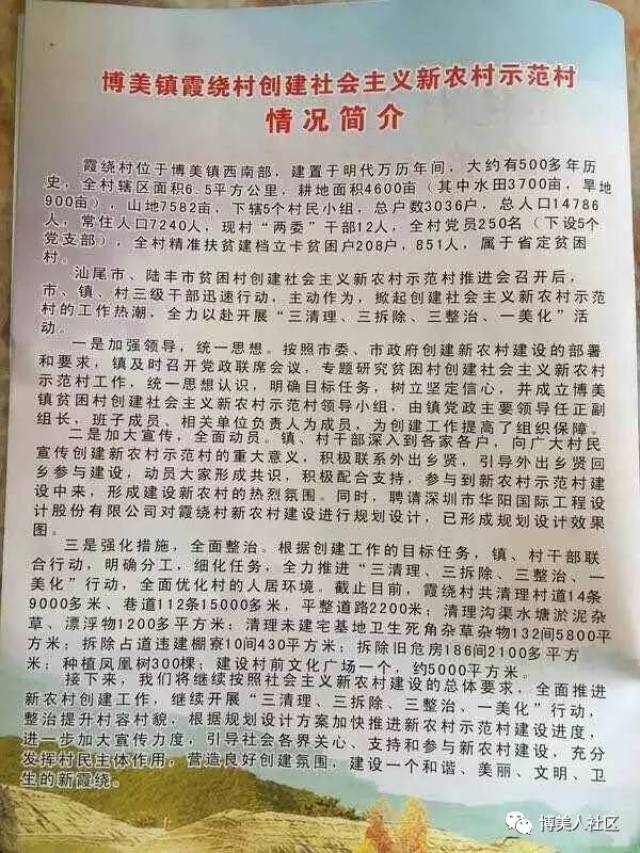 博美镇霞绕村创建社会主义新农村示范村
情况简介
霞绕村位于博美镇西南部，建置于明代万历年间，大约有500多年历
史，全村辖区面积6.5平方公里，耕地面积4600亩（其中水田3700亩，旱地
900亩），山地7582亩，下辖5个村民小组，总户数3036户，总人口14786
人，常住人口7240人，现村“两委”干部12人，全村党员250名（下设5个
党支部），全村精准扶贫建档立卡贫困户208户，851人，属于省定贫困
村。
汕尾市、陆丰市贫困村创建社会主义新农村示范村推进会召开后，
市、镇、村三级干部迅速行动，主动作为，掀起创建社会主义新农村示范
村的工作热潮，全力以赴开展“三清理、三拆除、三整治、一美化”活
动。
一是加强领导，统一思想。按照市委、市政府创建新农村建设的部署
和要求，镇及时召开党政联席会议，专题研究贫困村创建社会主义新农村
示范村工作，统一思想认识，明确目标任务，树立坚定信心，并成立博美
镇贫困村创建社会主义新农村示范村领导小组，由镇党政主要领导任正副
组长，班子成员、相关单位负责人为成员，为创建工作提高了组织保障。
二是加大宣传，全面动员。镇、村干部深入到各家各户，向广大村民
宣传创建新农村示范村的重大意义，积极联系外出乡贤，引导外出乡贤回
乡参与建设，动员大家形成共识，积极配合支持，参与到新农村示范村建
设中来，形成建设新农村的热烈氛围。同时，聘请深圳市华阳国际工程设
计股份有限公司对霞绕村新农村建设进行规划设计，已形成规划设计效果
图。
三是强化措施，全面整治。根据创建工作的目标任务，镇、村干部联
合行动，明确分工，细化任务，全力推进“三清理、三拆除、三整治、一
美化”行动，全面优化村的人居环境。截止目前，霞绕村共清理村道14条
9000多米、巷道112条15000多米，平整道路2200米；清理沟渠水塘淤泥杂
草、漂浮物1200多平方米；清理未建宅基地卫生死角杂草杂物132间5800平
方米；拆除占道违建棚寮10间430平方米；拆除旧危房186间2100多平方
米；种植凤凰树300棵；建设村前文化广场一个，约5000平方米。
接下来，我们将继续按照社会主义新农村建设的总体要求，全面推进
新农村创建工作，继续开展“三清理、三拆除、三整治、一美化”行动，
整治提升村容村貌，根据规划设计方案加快推进新农村示范村建设进度，
进一步加大宣传力度，引导社会各界关心、支持和参与新农村建设，充分
发挥村民主体作用，营造良好创建氛围，建设一个和谐、美丽、文明、卫
生的新霞绕。
博美人社区